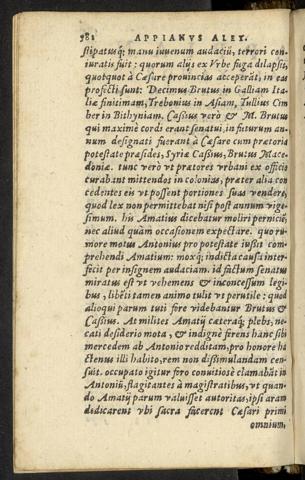 582 APPIANVS ALEX.
stipatusq́; manu iuuenum audaciũ, terrori con-
iuratis fuit: quorum alijs ex Vrbe fuga dilapsis,
quotquot à Cæsare prouincias acceperãt, in eas
profecti sunt: Decimus Brutus in Galliam Ita-
liæ finitimam, Trebonius in Asiam, Tullius Cim
ber in Bithyniam. Cassius verò & M. Brutus
qui maximè cordi erant senatui, in futurum an-
num designati fuerant à Cæsare cum prætoria
potestate præsides, Syriæ Cassius, Brutus Mace-
doniæ. tunc verò vt prætores vrbani ex officio
curabant mittendos in colonias, præter alia con
cedentes eis vt possent portiones suas vendere,
quod lex non permittebat nisi post annum vige-
simum. his Amatius dicebatur moliri perniciẽ,
nec aliud quàm occasionem expectare. quo ru-
more motus Antonius pro potestate iussit com-
prehendi Amatium: moxq́; indicta causa inter-
fecit per insignem audaciam. id factum senatus
miratus est vt vehemens & inconcessum legi-
bus, libẽti tamen animo tulit vt perutile: quod
alioqui parum tuti fore videbantur Brutus &
Cassius. At milites Amatij cateraq́; plebs, ne-
cati desiderio mota, & indignè ferens hanc sibi
mercedem ab Antonio redditam, pro honore ha
ctenus illi habito, rem non dissimulandam cen-
suit. occupato igitur foro conuitiosè clamabãt in
Antoniũ, flagitantes à magistratibus, vt quan-
do Amatij parum valuisset autoritas, ipsi aram
dedicarent vbi sacra facerent Cæsari primi
omnium,